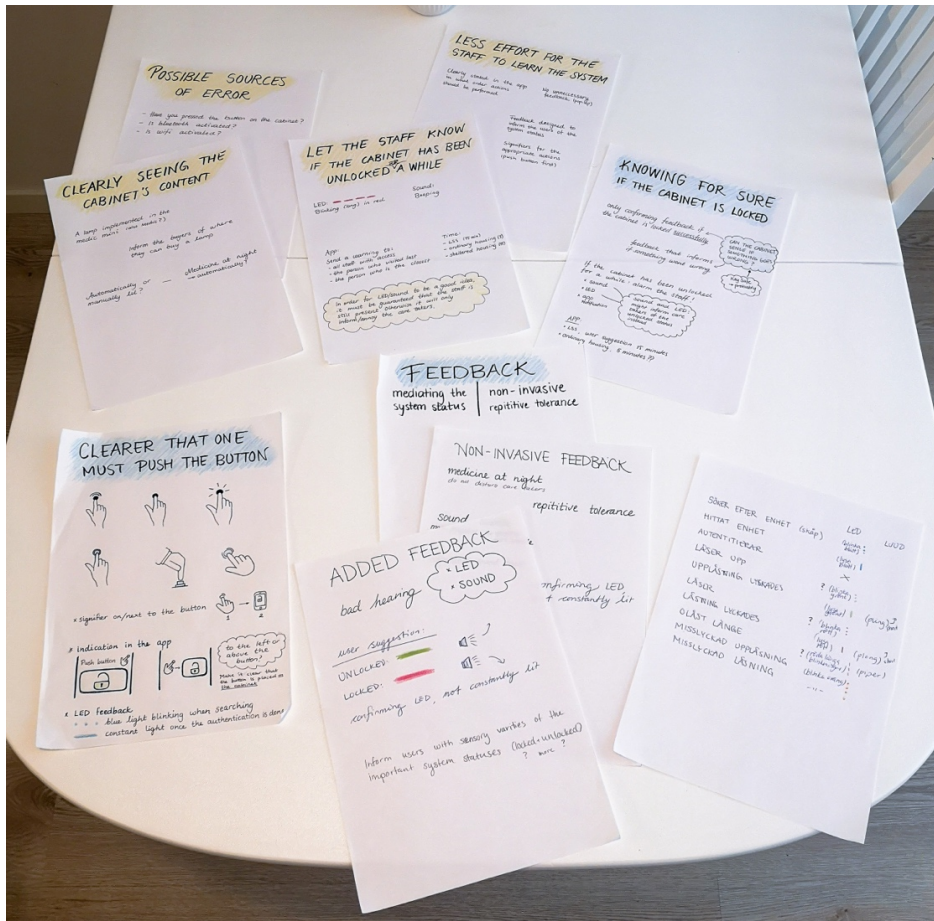 POSSIBLE SOURCES
OF ERROR
- Have you pressed the button on the cabinet?
- Is bluetooth activated?
- Is wifi activated?
LESS EFFORT FOR THE
STAFF TO LEARN THE SYSTEM
Clearly stated in the app
in what order actions
should be performed
No unnecessary
feedback
Feedback designed to
inform the users of the
system status
Signifiers for the
appropriate actions
(push button first)
CLEARLY SEEING THE
CABINET'S CONTENT
A lamp implemented in the
medic mini
Inform the buyers of where
they can buy a lamp
Automatically or
manually lit?
Medicine at night
→ automatically?
LET THE STAFF KNOW
IF THE CABINET HAS BEEN
UNLOCKED A WHILE
LED:
Blinking (long) in red
Sound:
Beeping
App:
Send a warning to:
- all staff with access
- the person who visited last
- the person who is the closest
Time:
- LSS
- ordinary housing
- sheltered housing
In order for LED/sound to be a good idea,
it must be guaranteed that the staff is
still present, otherwise it will only
inform/annoy the care takers.
KNOWING FOR SURE
IF THE CABINET IS LOCKED
only confirming feedback if
the cabinet is locked successfully
feedback that informs
if something went wrong
CAN THE CABINET
SENSE IF
SOMETHING GOES
WRONG?
If the cabinet has been unlocked
for a while: alarm the staff!
• sound
• LED
• app
Sound and LED:
might inform care
takers of the
unlocked status
instead
APP:
• LSS, user suggestion 15 minutes
• ordinary housing, 5 minutes?
FEEDBACK
mediating the
system status
non-invasive
repititive tolerance
CLEARER THAT ONE
MUST PUSH THE BUTTON
• signifier on/next to the button
1
2
* Indication in the app
Push button
to the left or
above the
button?
Make it clear that
the button is placed on
the cabinet
* LED Feedback
blue light blinking when searching
constant light once the authentication is done
NON-INVASIVE FEEDBACK
medicine at night
do not disturb care takers
repititive tolerance
Sound
confirming LED
constantly lit
ADDED FEEDBACK
bad hearing
* LED
* SOUND
user suggestion:
UNLOCKED:
LOCKED:
confirming LED, not constantly lit
Inform users with sensory varities of the
important system statuses (locked + unlocked)
? more ?
LED
LJUD
SÖKER EFTER ENHET
HITTAT ENHET
AUTENTITIERAR
LÅSER UPP
UPPLÅSNING LYCKADES
LÅSER
LÅSNING LYCKADES
OLÅST LÄNGE
MISSLYCKAD UPPLÅSNING
MISSLYCKAD LÅSNING